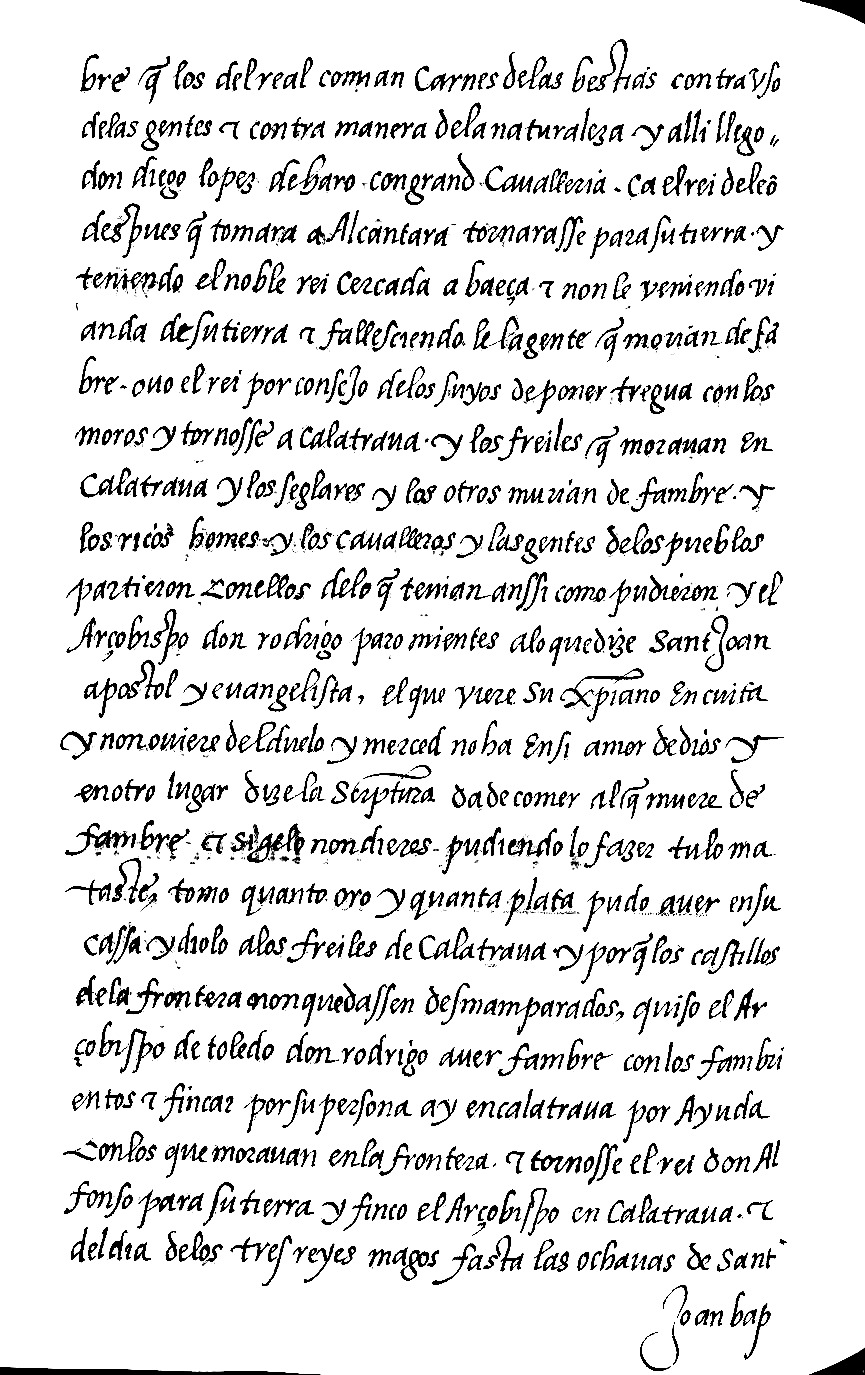 bre q̃ los del real comian Carnes delas bestias contra vso
delas gentes ⁊ contra manera dela naturaleza y alli llego
don diego lopez de haro con grand Cavalleria. Ca el rei de leõ
despues q̃ tomara a Alcantara tornarasse para su tierra. y
teniendo el noble rei Cercada a baeça ⁊ non le veniendo vi
anda de su tierra ⁊ fallesciendo le la gente q̃ morian de fã
bre. ouo el rei por consejo delos suyos de poner tregua con los
moros y tornosse a Calatraua. y los freiles q̃ morauan En
Calatraua y los seglares y los otros murian de fambre. y
los ricos homes. y los Caualleros y las gentes delos pueblos
partieron Con ellos delo q̃ tenian anssi como pudieron y el
Arçobispo don rodrigo paro mientes alo que dize Sant Joan
apostol y euangelista, el que viere Su xp̃iano En cuita
y non ouiere del duelo y merced no ha En si amor de dios y
en otro lugar dize la Scriptura da de comer al q̃ muere de
fambre ⁊ si gelo non dieres. pudiendo lo fazer tu lo ma
taste, tomo quanto oro y quanta plata pudo auer en su
Cassa y diolo alos freiles de Calatraua y porq̃ los castillos
de la frontera non quedassen desmamparados, quiso el Ar
çobispo de toledo don rodrigo auer fambre con los fambri
entos ⁊ fincar por su persona ay en calatraua por Ayuda
Con los que morauan en la frontera. ⁊ tornosse el rei don Al
fonso para su tierra y finco el Arçobispo en Calatraua. ⁊
del dia delos tres reyes magos fasta las ochauas de Sant
Joan bap